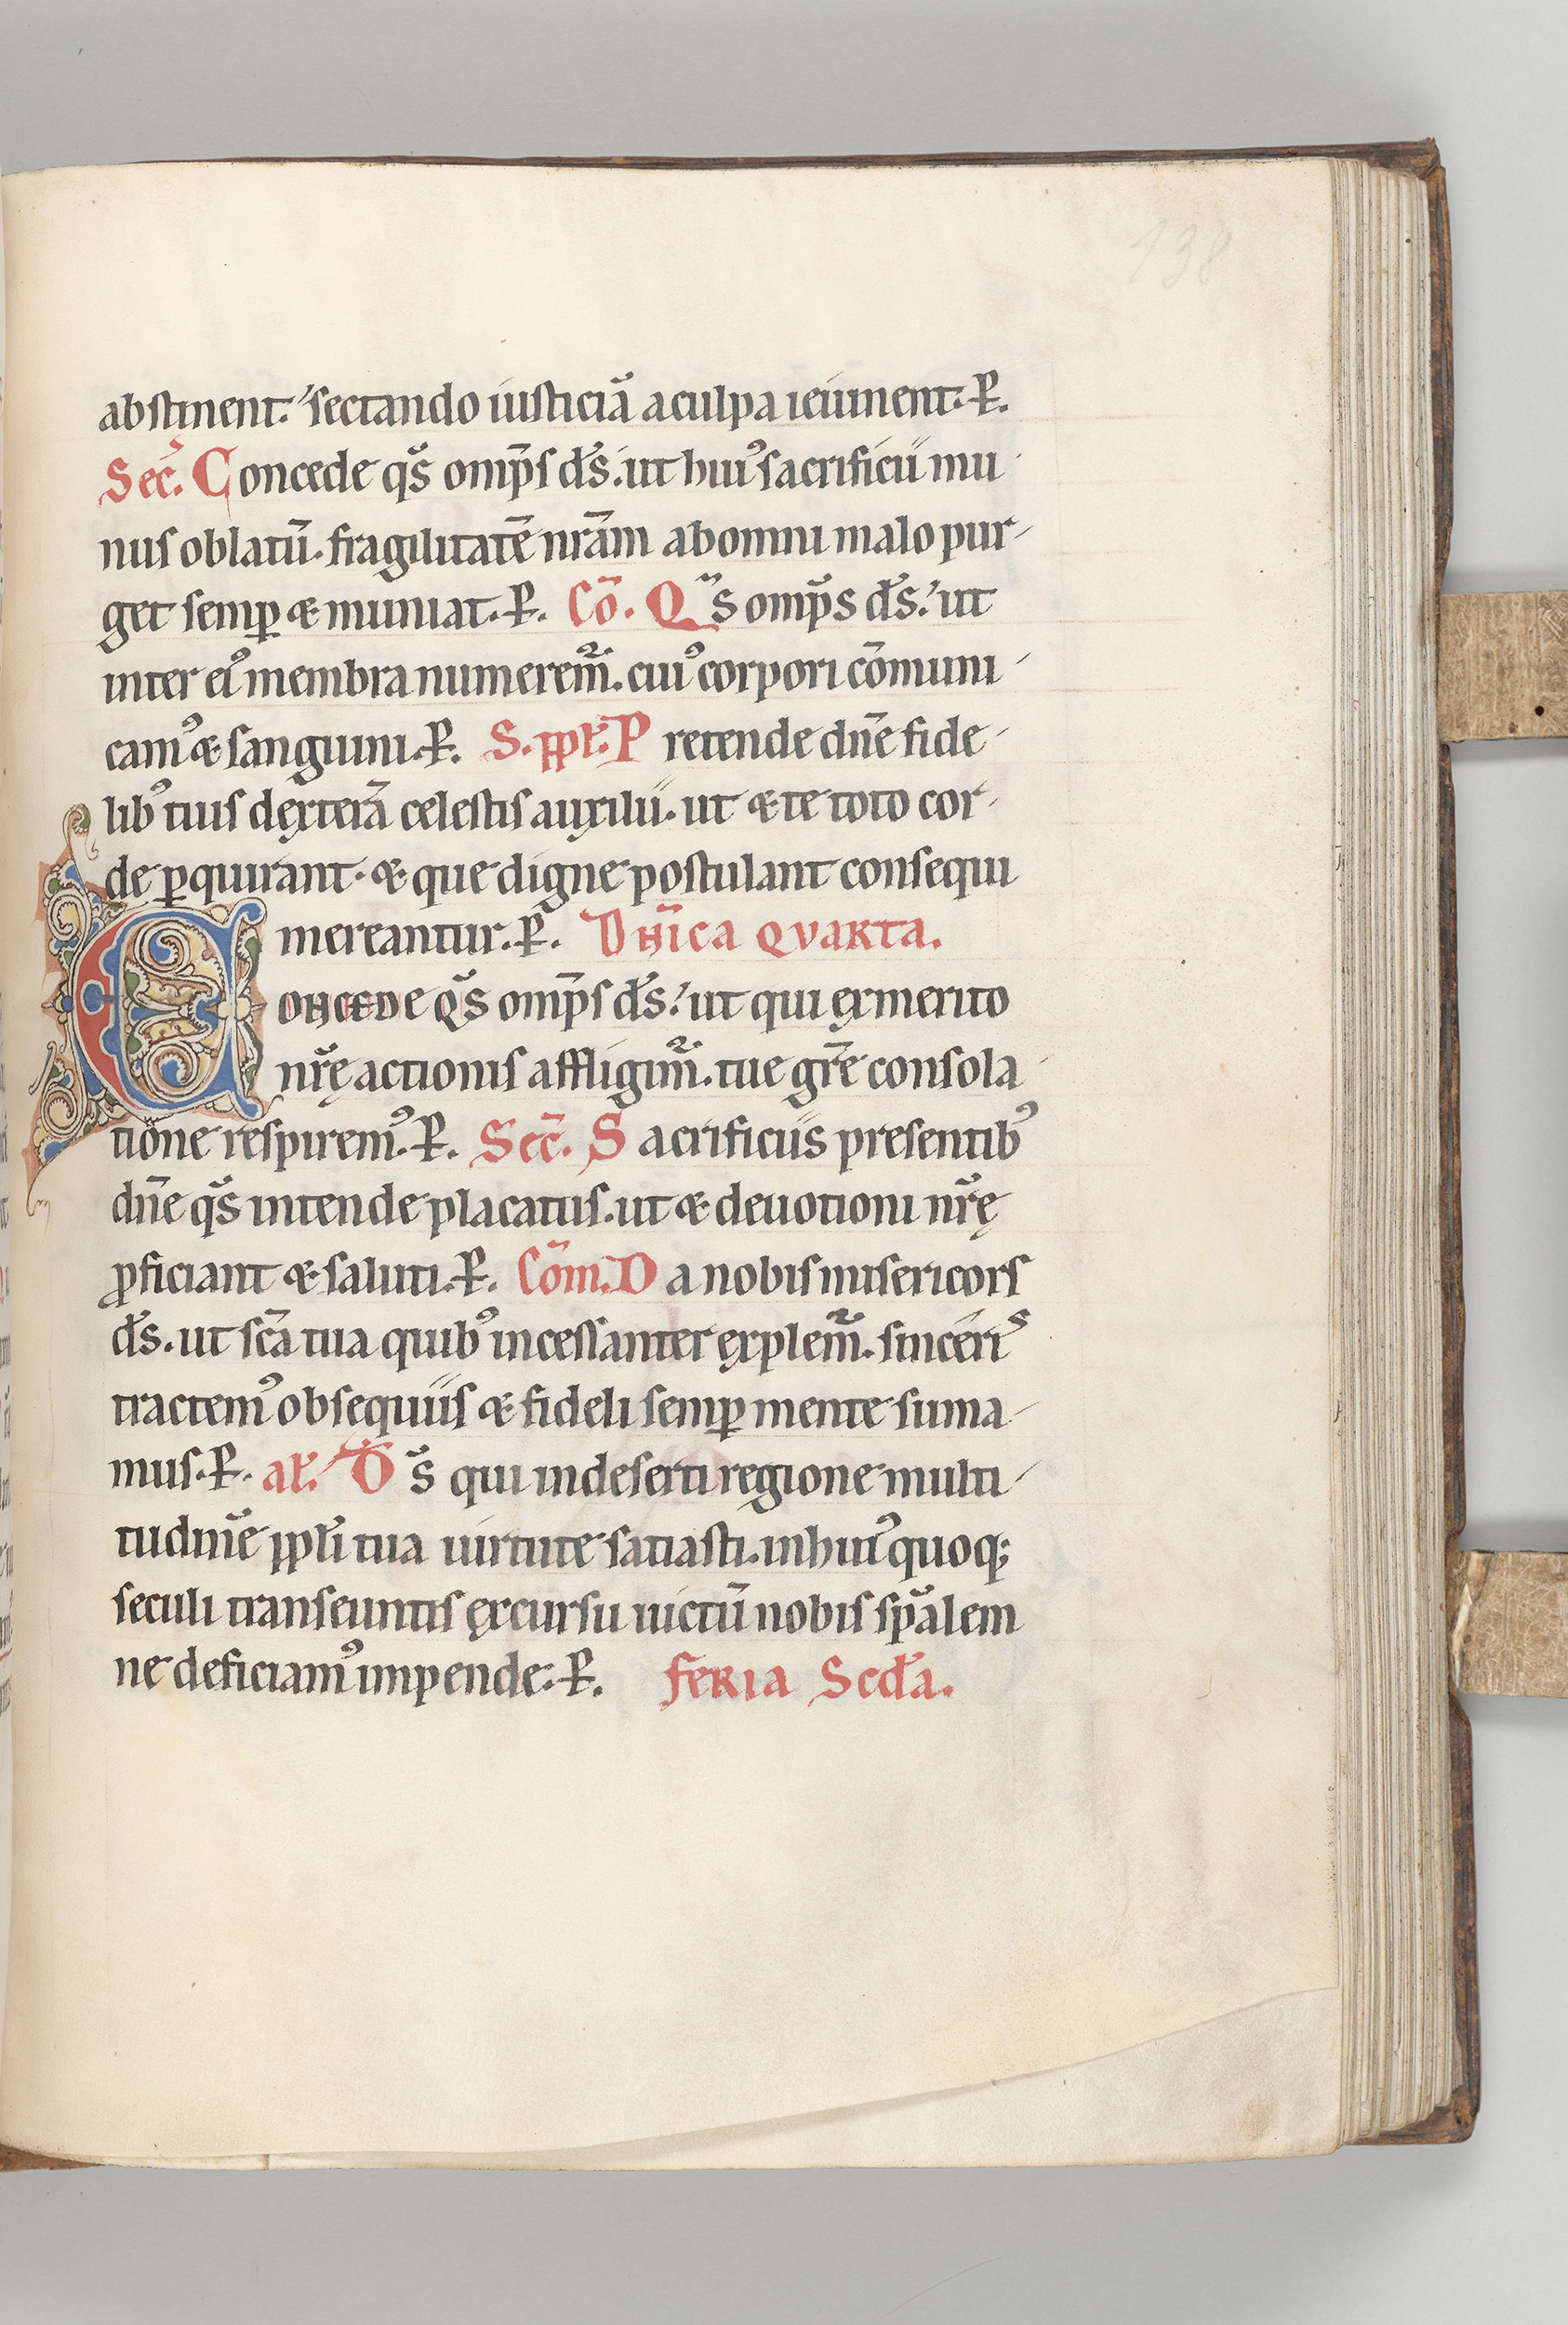 138
abstinent. sectando iusticiā a culpa ieiunent. P̶.
Sec̄. Concede qs̄ omp̄s ds̄. ut hui᾽ sacrificii mu
nus oblatū. fragilitatē nrām ab omni malo pur-
get semꝑ & muniat. P̶. Cō. Qs̄ omp̄s ds̄. ut
inter ei᾽ membra numerem̄. cui᾽ corpori cōmuni-
cam᾽ & sanguini. P̶. S. ppl̄. Pretende dn̄e fide-
lib᾽ tuis dexterā celestis auxilii. ut & te toto cor-
de ꝑquirant. & que digne postulant consequi
mereantur. P̶. Dn̄ica qvarta.
Concede qs̄ omp̄s ds̄. ut qui ex merito
nr̄ę actionis affligim̄. tue gr̄e consola-
tione respirem᾽. P̶. Sec̄. Sacrificiis presentib᾽
dn̄e qs̄ intende placatus. ut & deuotioni nr̄ę
ꝓficiant & saluti. P̶. Cōm. Da nobis misericors
ds̄. ut sc̄a tua quib᾽ incessanter explem̄. sinceris
tractem᾽ obsequiis & fideli semꝑ mente suma-
mus. P̶. al̄. Ds̄ qui in deserti regione multi-
tudinē ppl̄i tua uirtute satiasti. in hui᾽ quoq;
seculi transeuntis excursu uictū nobis sp̄alem
ne deficiam᾽ impende. P̶. feria Scd̄a.